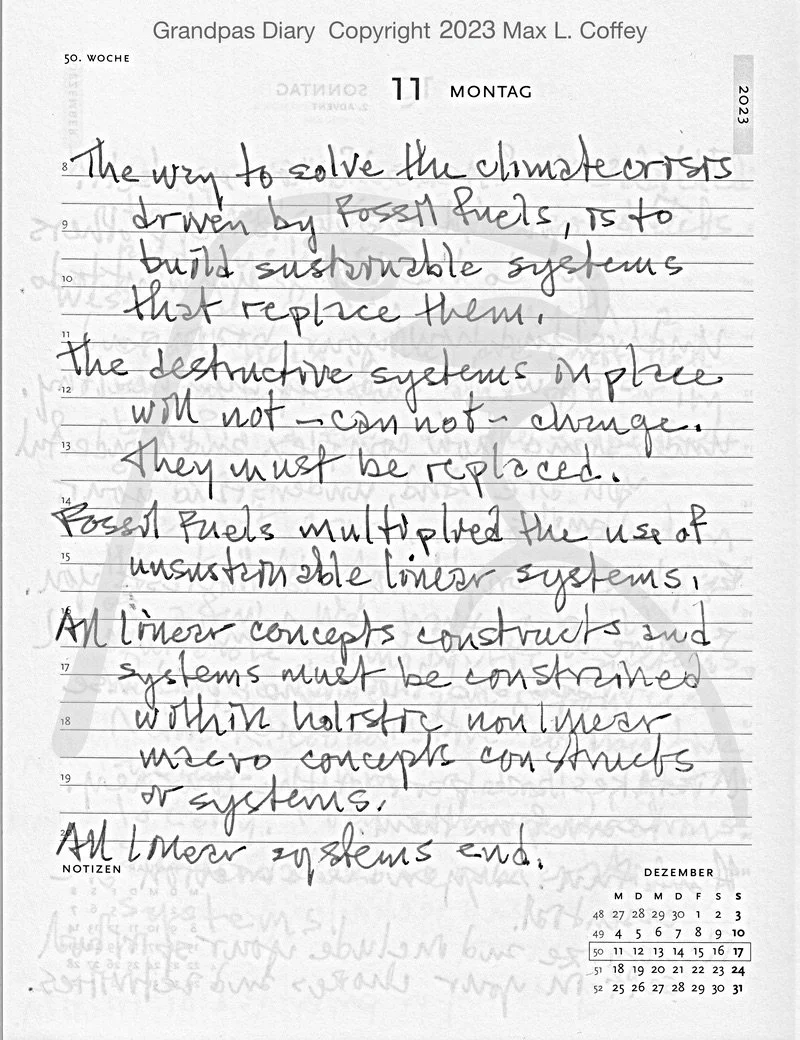 Grandpas Diary Copyright 2023 Max L. Coffey
50. WOCHE
11 MONTAG
2023
8 The way to solve the climate crisis
9 driven by Fossil Fuels, is to
build sustainable systems
10 that replace them.
11 The destructive systems in place
12 will not - can not - change.
13 They must be replaced.
14 Fossil Fuels multiplied the use of
15 unsustainable linear systems.
16 All linear concepts constructs and
17 systems must be constrained
18 within holistic nonlinear
macro concepts constructs
19 or systems.
20 All linear systems end.
NOTIZEN
DEZEMBER
M D M D F S S
48 27 28 29 30 1 2 3
49 4 5 6 7 8 9 10
50 11 12 13 14 15 16 17
51 18 19 20 21 22 23 24
52 25 26 27 28 29 30 31